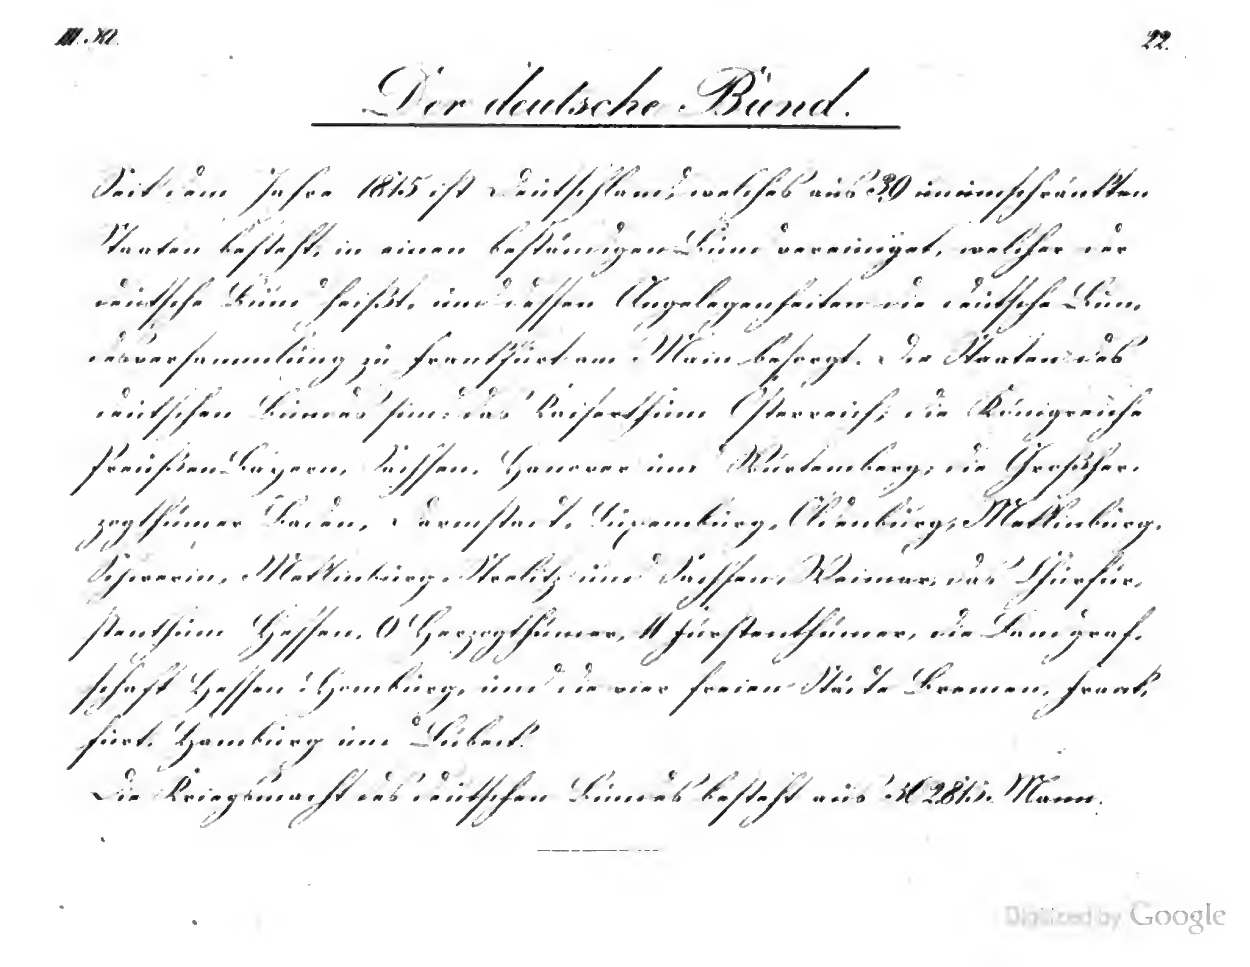 III. XI.
22.
Der deutsche Bund.
Seit dem Jahre 1815 ist Deutschland, welches aus 39 unumschränkten
Staaten besteht, in einen beständigen Bund vereiniget, welcher der
deutsche Bund heißt, und dessen Angelegenheiten die deutsche Bun-
desversammlung zu Frankfurt am Main besorgt. Die Staaten des
deutschen Bundes sind: das Kaiserthum Österreich, die Königreiche
Preußen, Bayern, Sachsen, Hanover und Würtemberg, die Großher-
zogthümer Baden, Darmstadt, Luxemburg, Oldenburg, Meklinburg-
Schwerin, Meklinburg-Strelitz und Sachsen-Weimar, das Churfür-
stenthum Hessen, Herzogthümer, 11 Fürstenthümer, die Landgraf-
schaft Hessen-Homburg, und die vier freien Städte Bremen, Frank-
furt, Hamburg und Lübeck.
Die Kriegsmacht des deutschen Bundes besteht aus Mann.
Digitized by Google